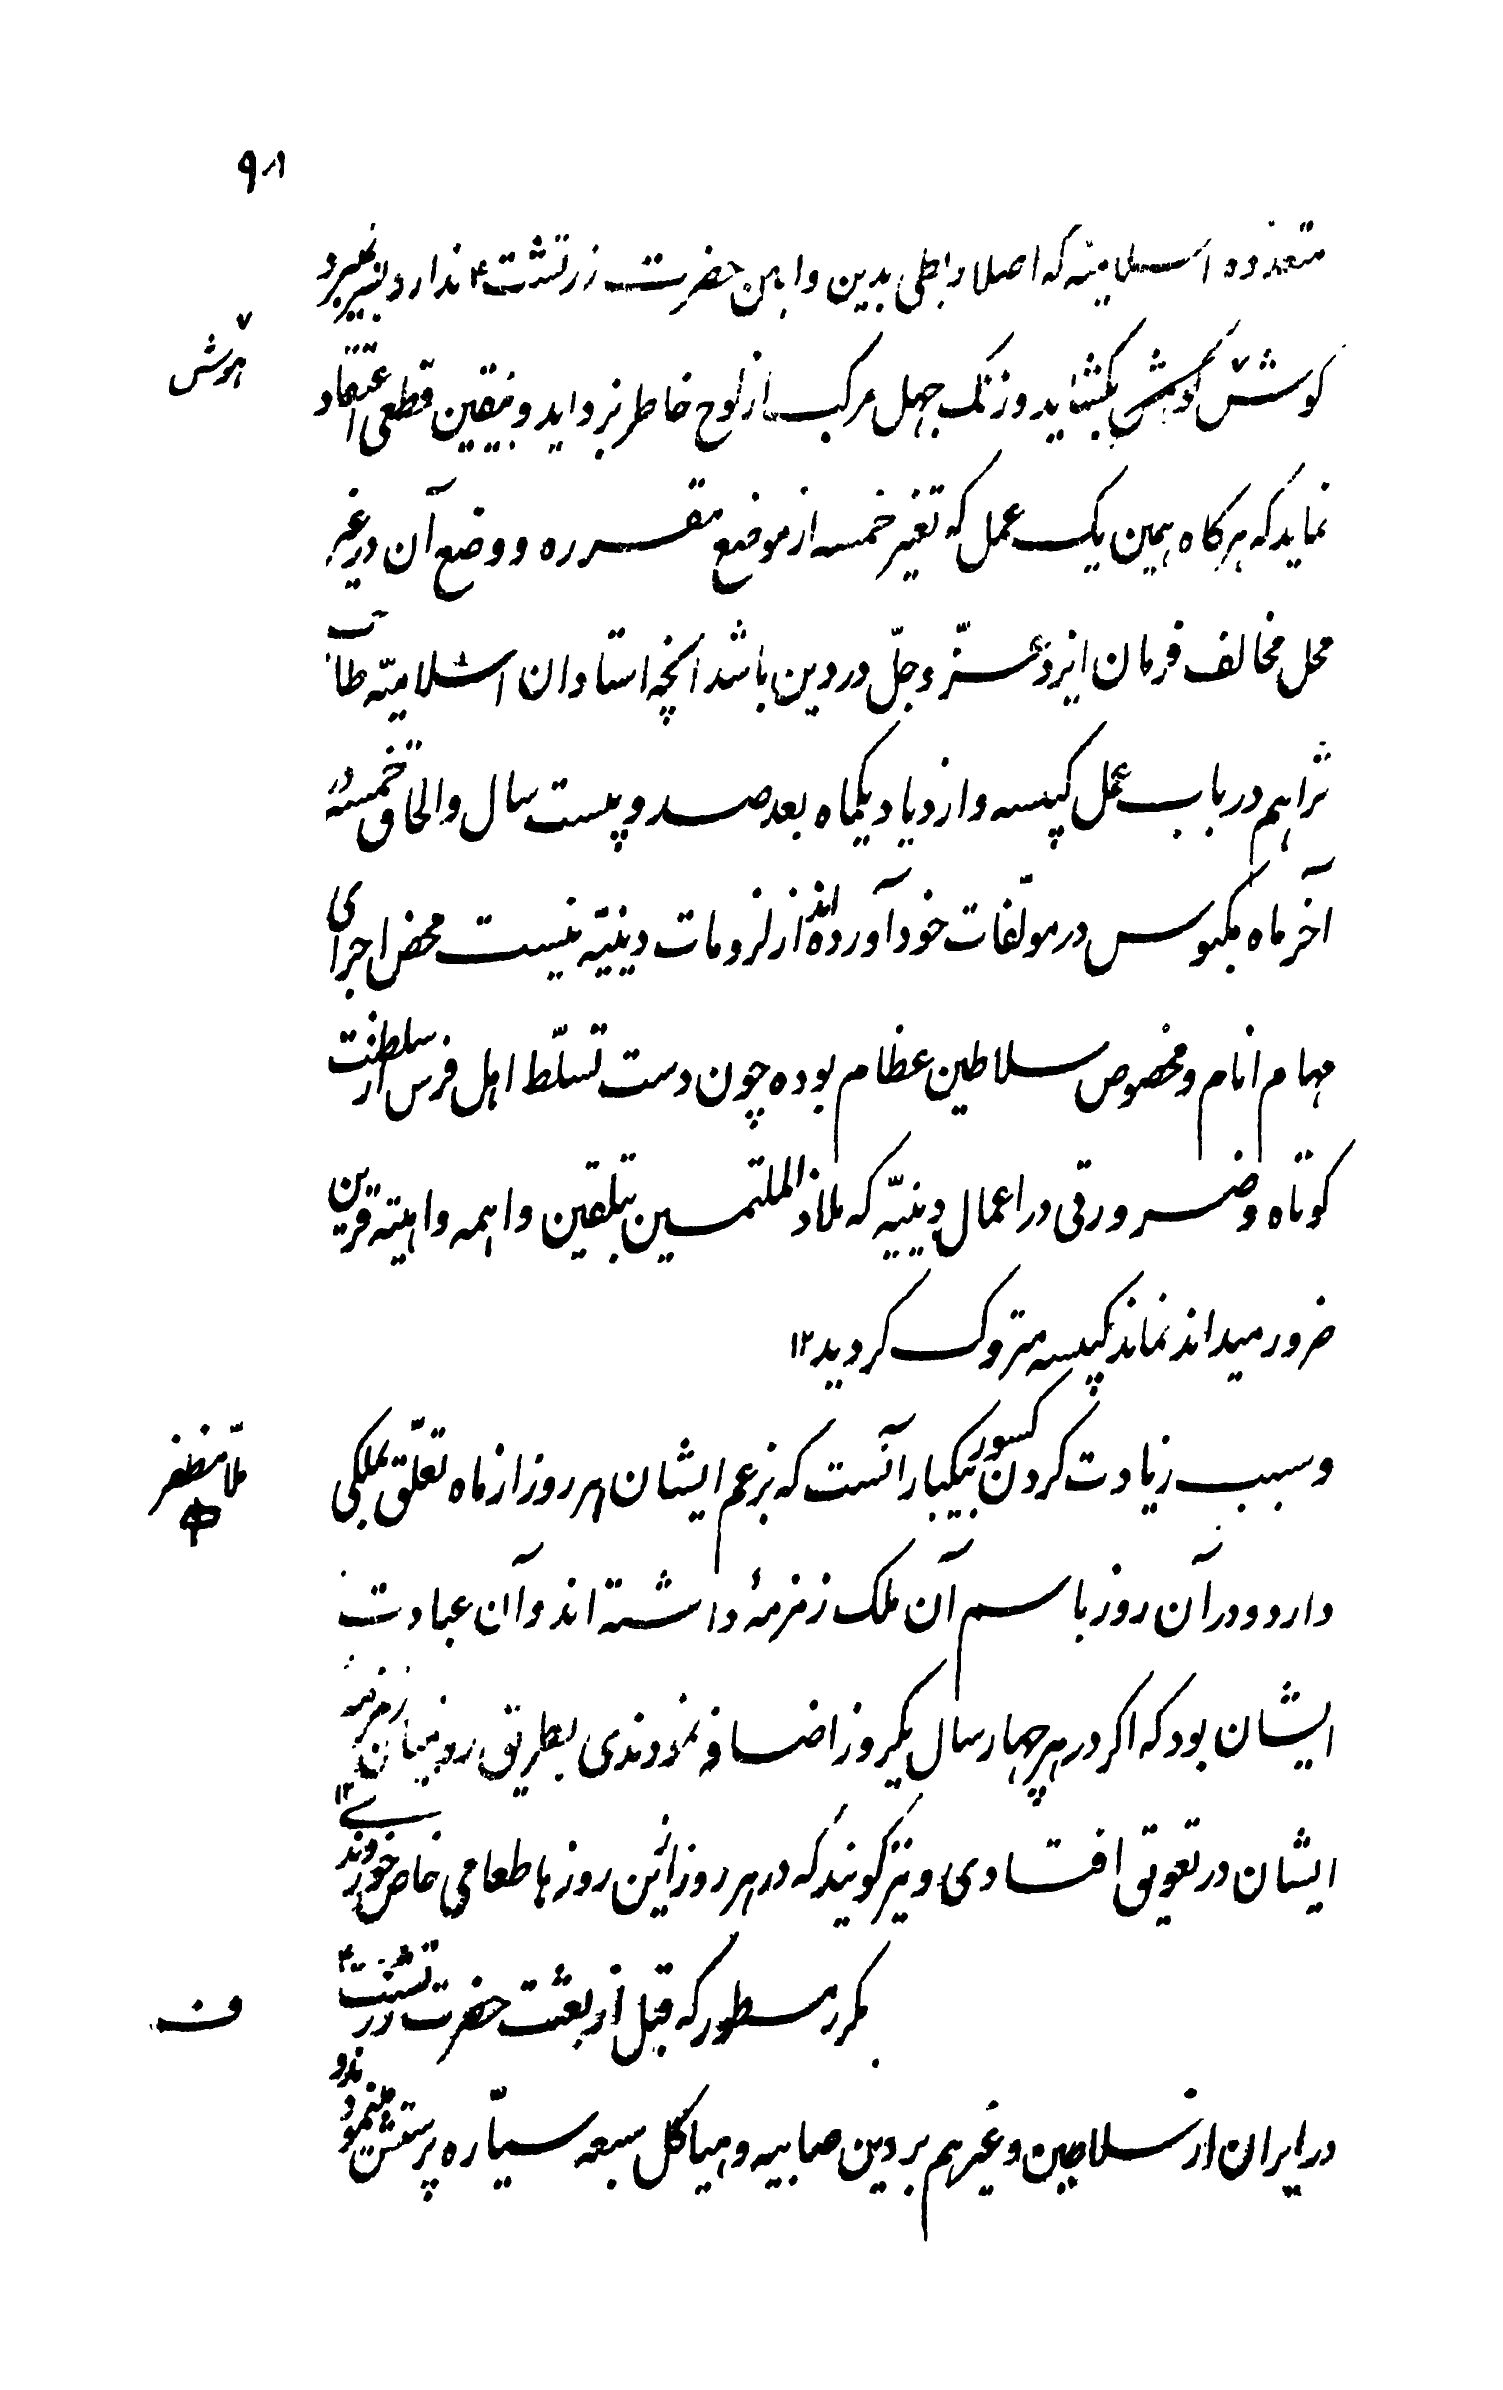 ۹۸
متعدده اسلامیه که اصلا ربطی بدین و ایین حضرت زرتشت ۴ ندارد بپذیرد
گوش بگشاید و زنک جهل مرکب از لوح خاطر بزداید و بیقین قطعی اعتقاد
هوش
نماید که هرکاه همین یک عمل که تغیر خمسه از موضع مقرره و وضع آن در غیر
محل مخالف فرمان ایزد عزّ و جلّ در دین باشد انچه استادان اسلامیّه طاب
ثراهم در باب عمل کبیسه و ازدیاد یکماه بعد صد و بیست سال و الحاق خمسه در
آخر ماه مکبوس در مولّفات خود آورده اند از لزومات دینیّه نیست محض اجرای
مهام انام و مخصوص سلاطین عظام بوده چون دست تسلّط اهل فرس از سلطنت
کوتاه و ضرورتی در اعمال دینیّه که ملاذ الملتمسین بتلقین واهمه واهیته قرین
ضرور میداند نماند کبیسه متروک کردید ۱۲
و سبب زیادت کردن کسور بیکبار آنست که بزعم ایشان هر روز از ماه تعلّق بملکی
ملّا مظفر
دارد و در آن روز باسم آن ملک زمزمهٔ داشته اند و آن عبادت
ایشان بود که اکر در هر چهار سال یکروز اضافه نمودندی بطریق رومیان زمزمه
ایشان در تعویق افتادی و نیز کویند که در هر روز ازین روزها طعامی خاص خوردندی ۱۲
مکرر مسطور که قبل از بعثت حضرت زرتشت ۴
ف
در ایران از سلاطین و غیرهم بر دین صابیه و هیاکل سبعه سیّاره پرستش مینمودند و